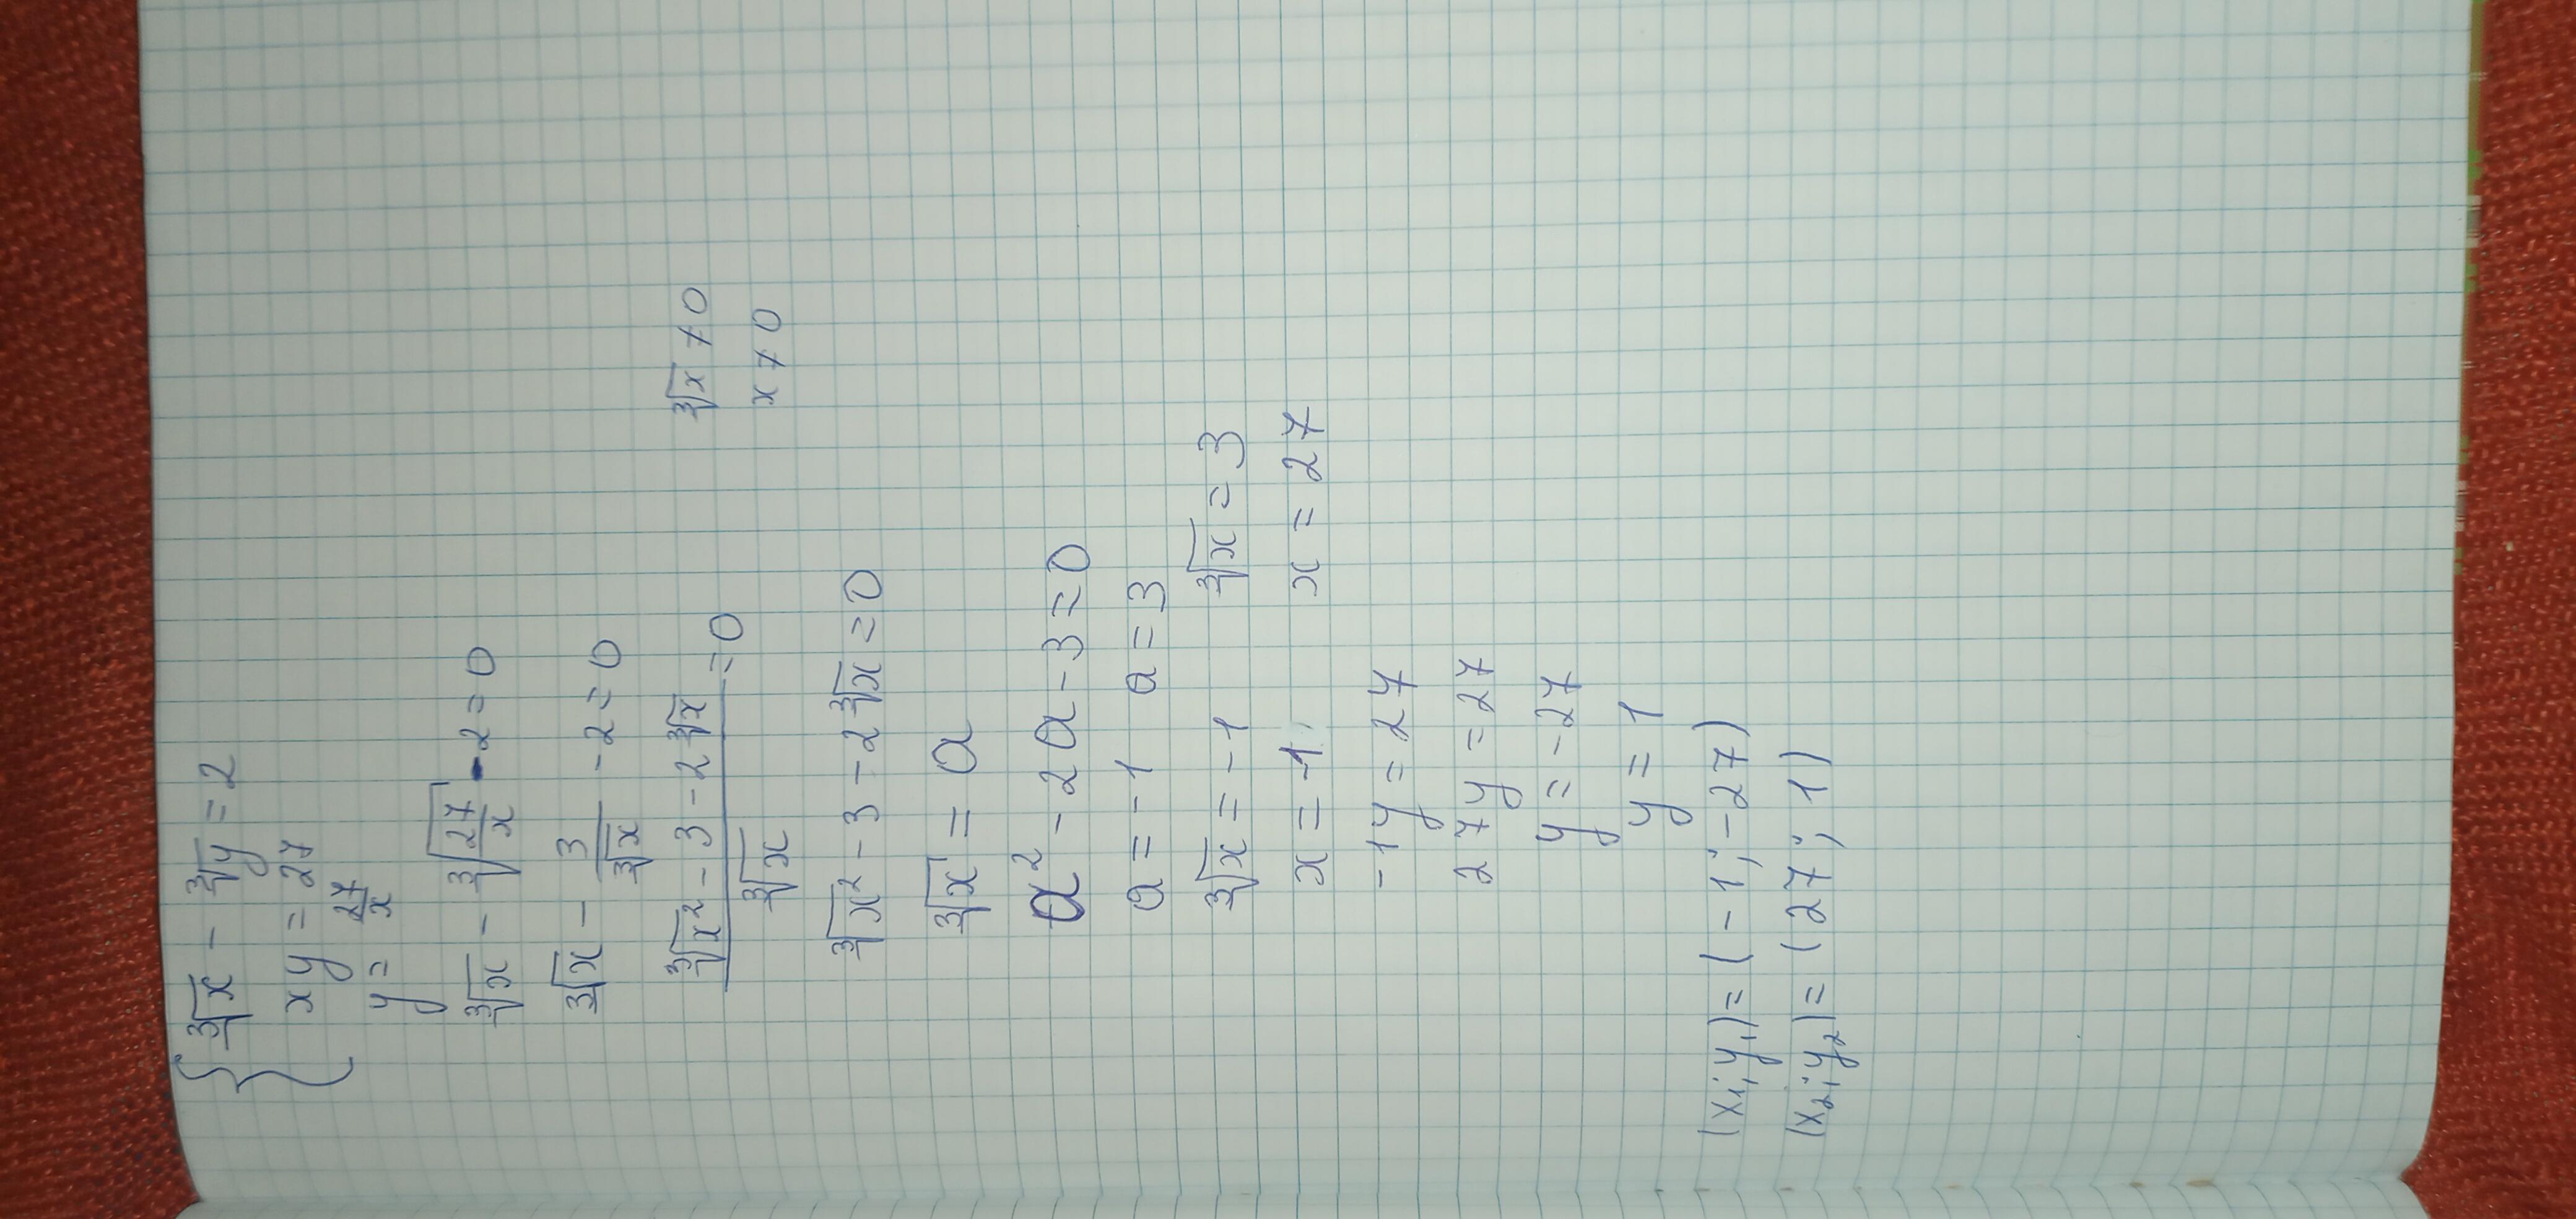 { ∛x - ∛y = 2
xy = 27
y = 27/x
∛x - ∛(27/x) - 2 = 0
∛x - 3/∛x - 2 = 0
(∛x² - 3 - 2∛x)/∛x = 0 ∛x ≠ 0
x ≠ 0
∛x² - 3 - 2∛x = 0
∛x = a
a² - 2a - 3 = 0
a = -1 a = 3
∛x = -1 ∛x = 3
x = -1 x = 27
-1y = 27
27y = 27
y = -27
y = 1
(x₁; y₁) = (-1; -27)
(x₂; y₂) = (27; 1)